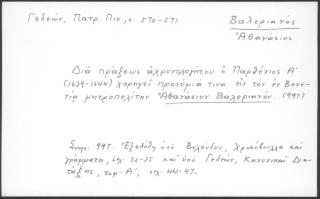 Γεδεών, Πατρ. Πιν, σ. 570-571
Βαλεριανός
Ἀθανάσιος
Διά πράξεως ἀχρονολογήτου ὁ Παρθένιος Α'
(1639-1644) χορηγεῖ προνόμιά τινα εἰς τόν ἐν Βενε
τίᾳ μητροπολίτην Ἀθανάσιον Βαλεριανόν. (997)
Σημ. 997. Ἐξεδόθη ὑπό Βελούδου, Χρυσόβουλλα καί
γράμματα, σελ. 22-25 καί ὑπό Γεδεών, Κανονικαί Δια
τάξεις, τομ. Α', σελ. 44-47.